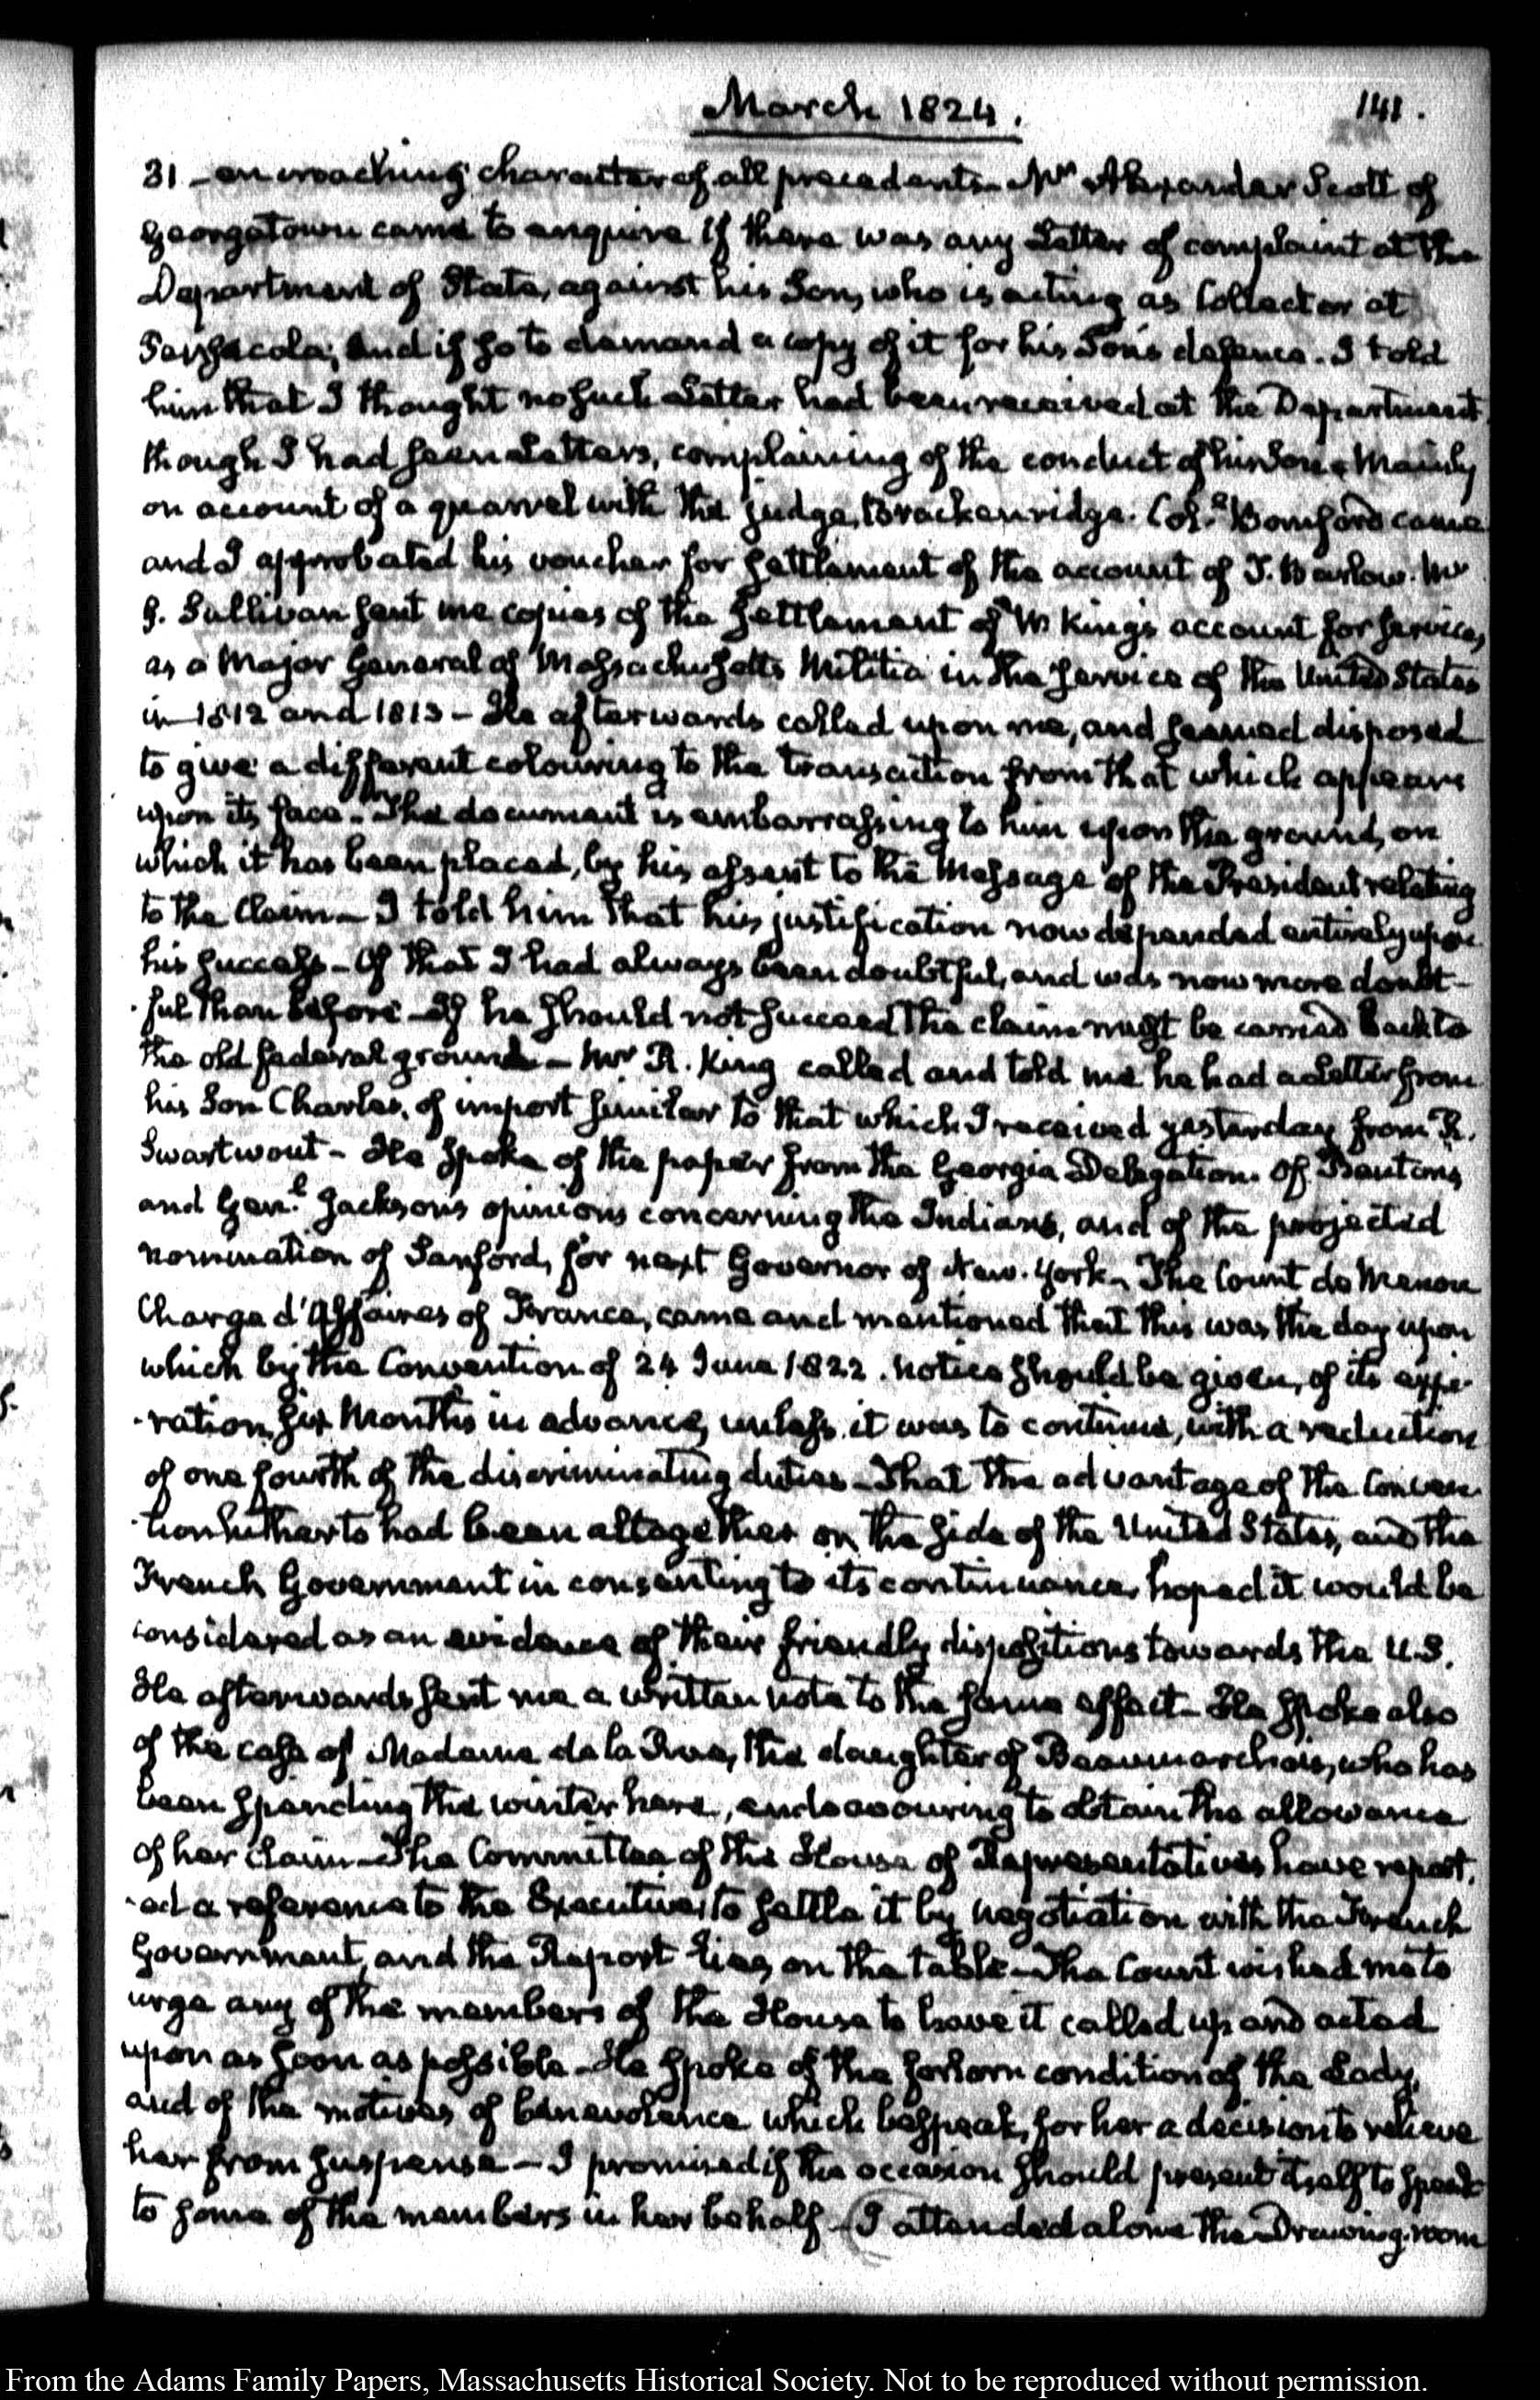 March 1824.
141.
31 - encroaching character of all precedents - Mr Alexander Scott of
Georgetown came to enquire if there was any Letter of complaint at the
Department of State, against his Son, who is acting as Collector at
Pensacola; and if so to demand a copy of it for his Son's defence. I told
him that I thought no such Letter had been received at the Department
though I had seen Letters, complaining of the conduct of his Son & Mainly
on account of a quarrel with the judge, Brackenridge. Col.l Bomford came
and I approbated his voucher for settlement of the account of J. Barlow. Mr
G. Sullivan sent me copies of the settlement of W King's account for services,
as a Major General of Massachusetts Militia in the service of the United States
in 1812 and 1813 - He afterwards called upon me, and seemed disposed
to give a different colouring to the transaction from that which appears
upon its face - The document is embarrassing to him upon the ground, on
which it has been placed, by his assent to the Message of the President relating
to the Claim - I told him that his justification now depended entirely upon
his success - Of that I had always been doubtful, and was now more doubt-
-ful than before - If he should not succeed the claim must be carried back to
the old federal ground - Mr R. King called and told me he had a Letter from
his Son Charles, of import similar to that which I received yesterday from R.
Swartwout - He spoke of the paper from the Georgia Delegation. Of Benton's
and Gen.l Jackson's opinions concerning the Indians, and of the projected
nomination of Sanford, for next Governor of New-York - The Count de Menou
Chargé d'Affaires of France, came and mentioned that this was the day upon
which by the Convention of 24 June 1822. notice should be given, of its expi-
-ration, six Months in advance, unless it was to continue, with a reduction
of one fourth of the discriminating duties - That the advantage of the Conven-
-tion hitherto had been altogether on the side of the United States, and the
French Government in consenting to its continuance, hoped it would be
considered as an evidence of their friendly dispositions towards the U.S.
He afterwards sent me a written note to the same effect - He spoke also
of the case of Madame de la Rue, the daughter of Beaumarchais, who has
been spending the winter here, endeavouring to obtain the allowance
of her claim - The Committee of the House of Representatives have report-
-ed a reference to the Executive, to settle it by negotiation with the French
Government, and the Report lies on the table - The Count wished me to
urge any of the members of the House to have it called up and acted
upon as soon as possible - He spoke of the forlorn condition of the Lady,
and of the motives of benevolence which bespeak, for her a decision to relieve
her from suspense - I promised if the occasion should present itself to speak
to some of the members in her behalf - I attended alone the Drawing-room
From the Adams Family Papers, Massachusetts Historical Society. Not to be reproduced without permission.